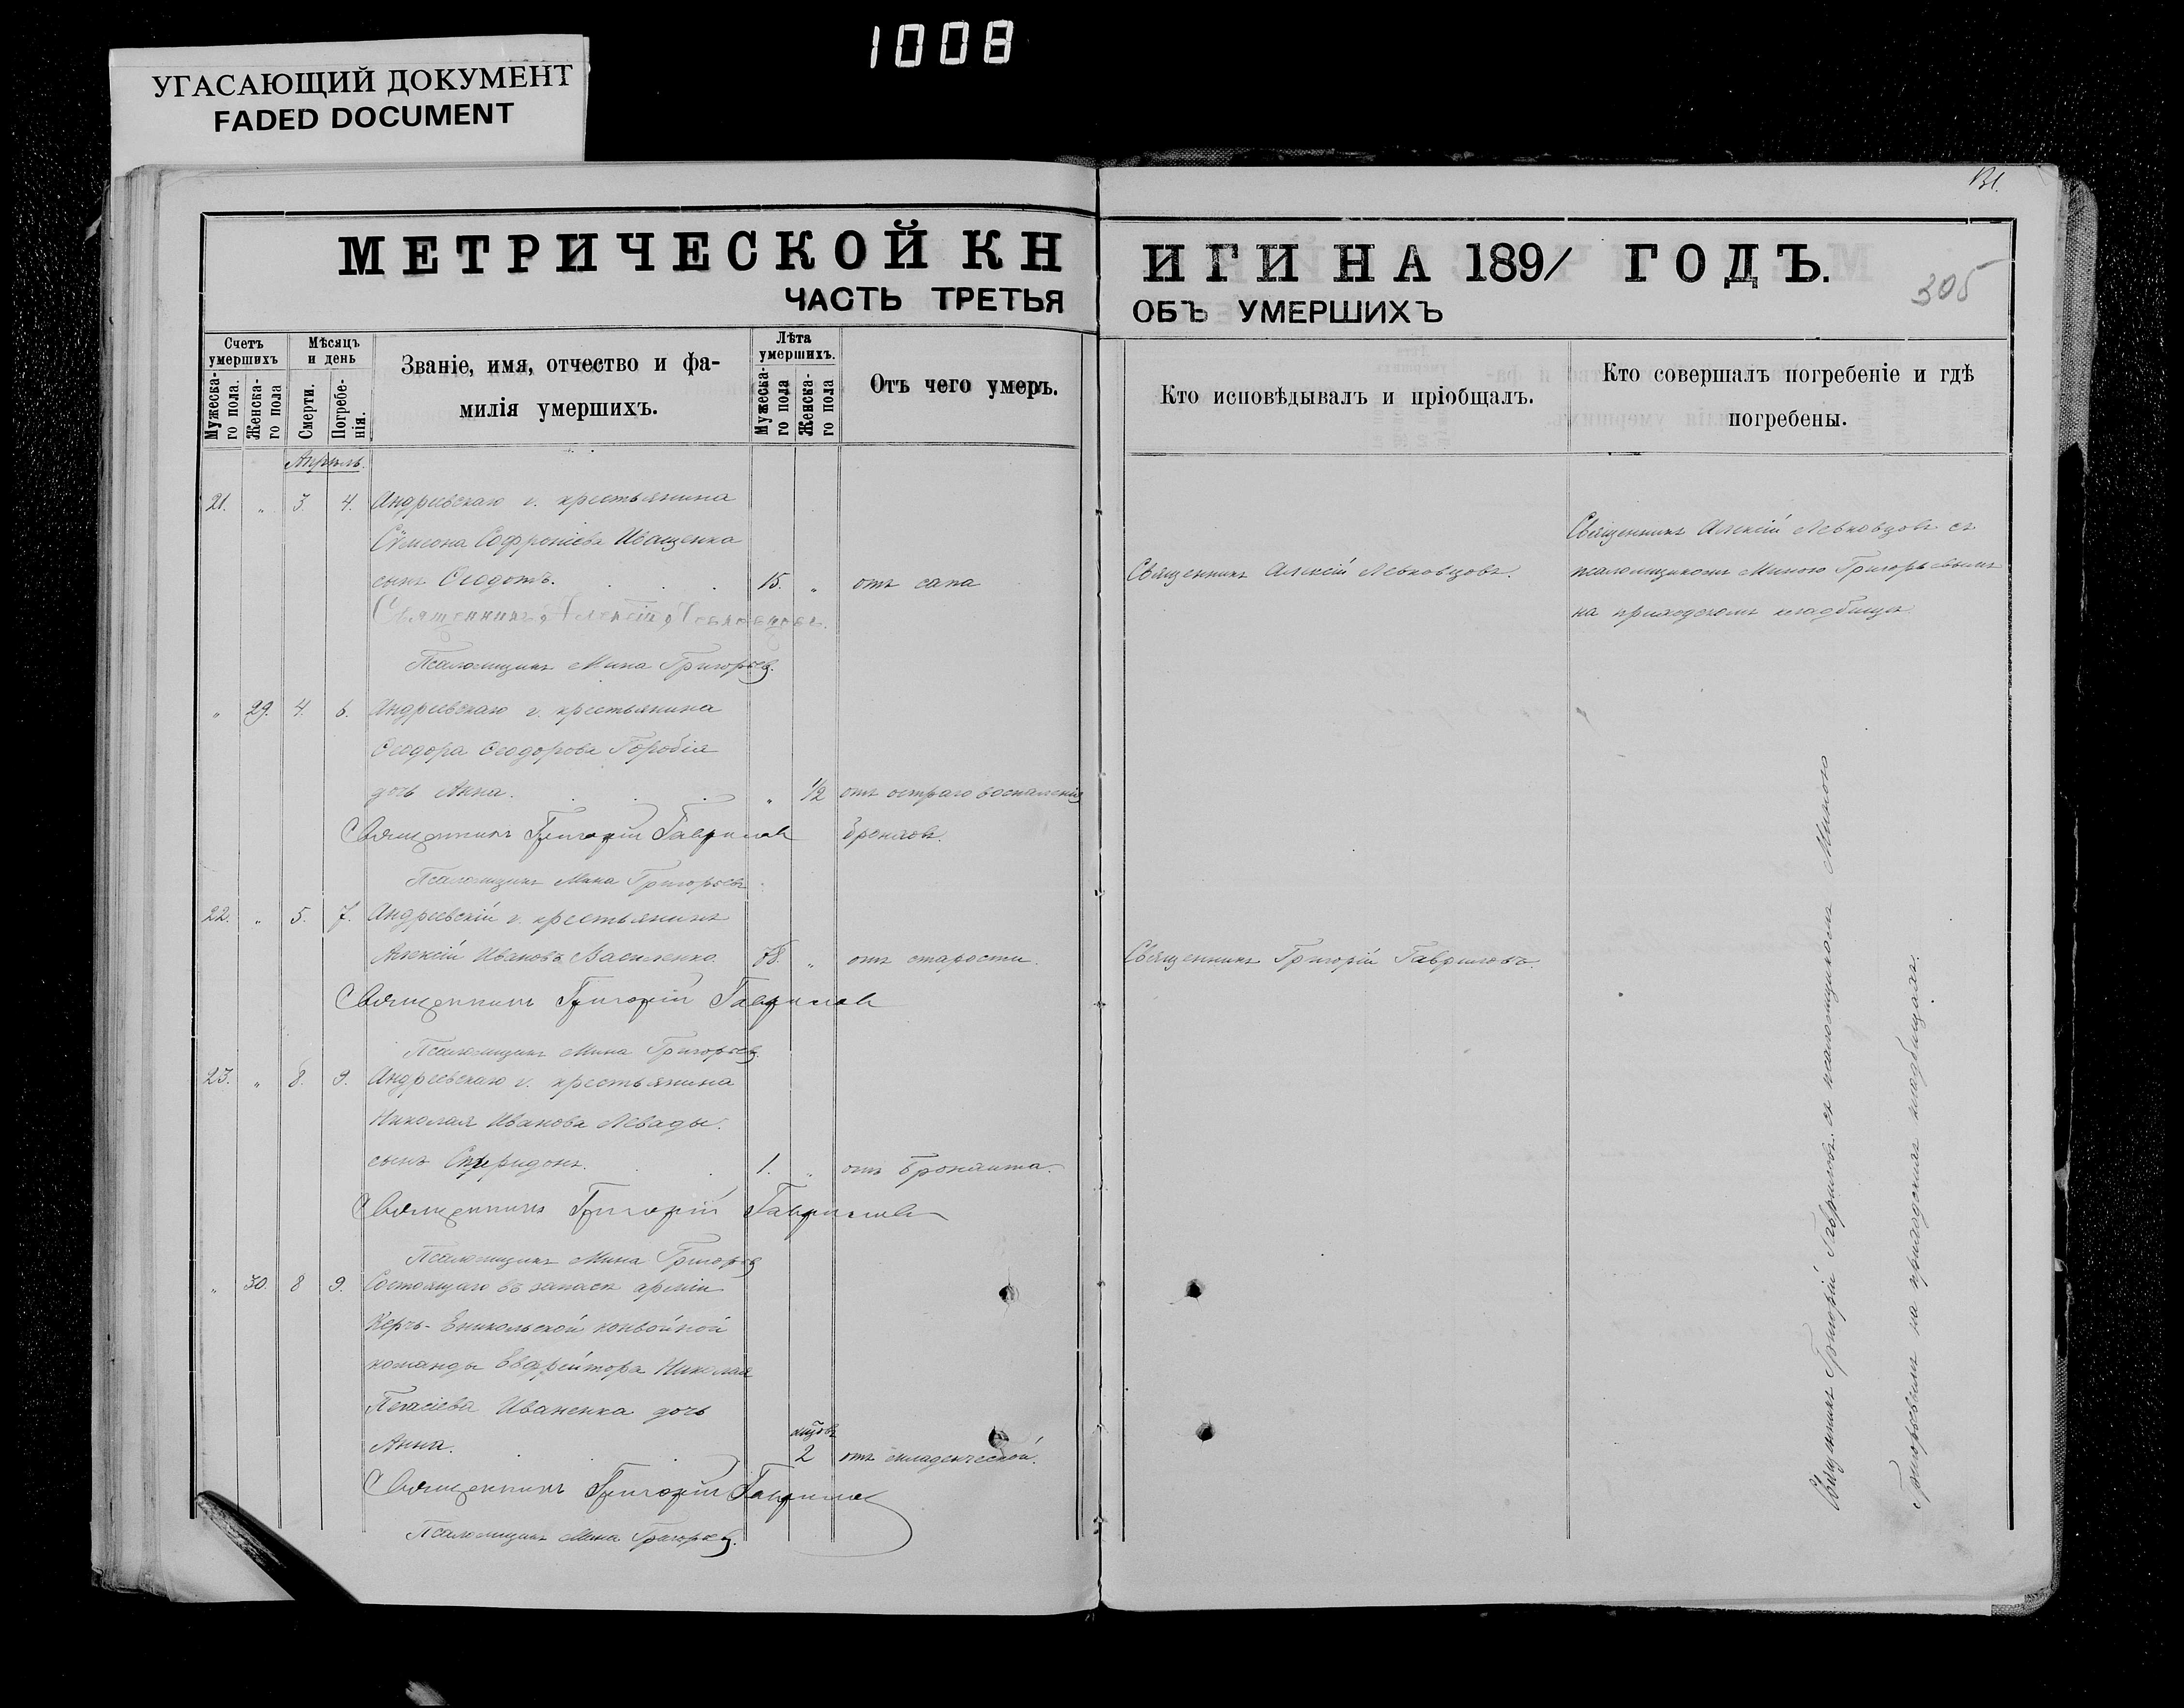 1008
УГАСАЮЩИЙ ДОКУМЕНТ
FADED DOCUMENT
МЕТРИЧЕСКОЙ КН
ЧАСТЬ ТРЕТЬЯ
Счетъ умершихъ
Мужеска-го пола.
Женска-го пола
Мѣсяцъ и день
Смерти.
Погребе-нія.
Званіе, имя, отчество и фа-
милія умершихъ.
Лѣта умершихъ.
Мужеска-го пола
Женска-го пола
Отъ чего умеръ.
Апрѣль.
21. " 3. 4. Андреевскаго с. крестьянина
Сѵмеона Софроніева Иващенка
сынъ Ѳеодотъ. 15. " отъ сапа
Священникъ Алексій Левковцовъ.
Псаломщикъ Мина Григорьевъ.
" 29. 4. 6. Андреевскаго с. крестьянина
Ѳеодора Ѳеодорова Горобія
дочь Анна. " 1/2 отъ остраго воспаленія
Священникъ Григорій Гавриловъ бронховъ.
Псаломщикъ Мина Григорьевъ
22. " 5. 7. Андреевскій с. крестьянинъ
Алексій Ивановъ Василенко. 78. " отъ старости.
Священникъ Григорій Гавриловъ
Псаломщикъ Мина Григорьевъ.
23. " 8. 9. Андреевскаго с. крестьянина
Николая Иванова Левады.
сынъ Спиридонъ. 1. " отъ бронхита.
Священникъ Григорій Гавриловъ
Псаломщикъ Мина Григорьевъ
" 30. 8 9. Состоящаго въ запасѣ арміи
Керчь-Еникольской конвойной
команды Ефрейтора Николая
Иваненка дочь
Анна. 2 отъ младенческой.
Священникъ Григорій Гавриловъ
Псаломщикъ Мина Григорьевъ.
ИГИ НА 1891 ГОДЪ.
305
ОБЪ УМЕРШИХЪ
Кто исповѣдывалъ и пріобщалъ.
Кто совершалъ погребеніе и гдѣ
погребены.
Священникъ Алексій Левковцовъ съ
Священникъ Алексій Левковцовъ. псаломщикомъ Миною Григорьевымъ
на приходскомъ кладбищѣ
Священникъ Григорій Гавриловъ.
Священникъ Григорій Гавриловъ съ псаломщикомъ Миною
Григорьевымъ на приходскихъ кладбищахъ.